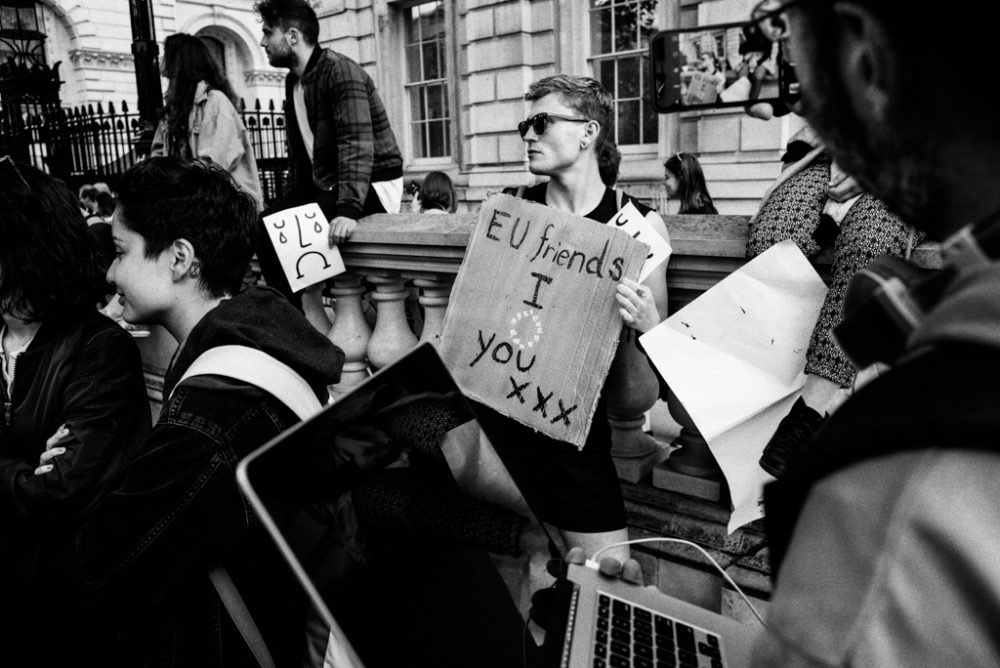 EU friends
I
you
xxx